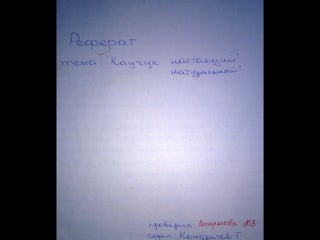 Реферат
тема "Каучук настоящий"
натуральной"
проверил Ю.В
сдал Кондратов Г